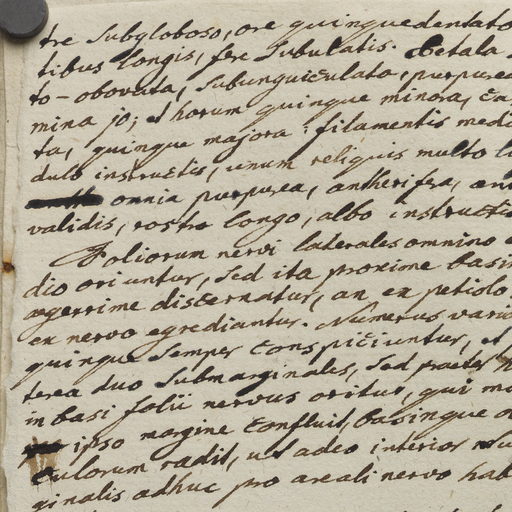 tre subgloboso, ore quinquedentato
tibus longis, fere subulatis. Petala
to-obovata, subunguiculata, purpurea
mina 10; et horum quinque minora,
ta, quinque majora: filamentis medi
dulo instructis, unum reliquis multo
omnia purpurea, antherifera,
validis, rostro longo, albo instructi
Foliorum nervi laterales omnino
dio oriuntur, sed ita proxime basin
ægerrime discernatur, an ex petiolo
ex nervo egrediantur. Numerus vari
quinque semper conspiciuntur, et
terea duo submarginales, sed praeter
in basi folii nervus oritur, qui
ipso margine confluit, basinque
culorum radit, ut adeo interior
ginalis adhuc pro areali nervo hab